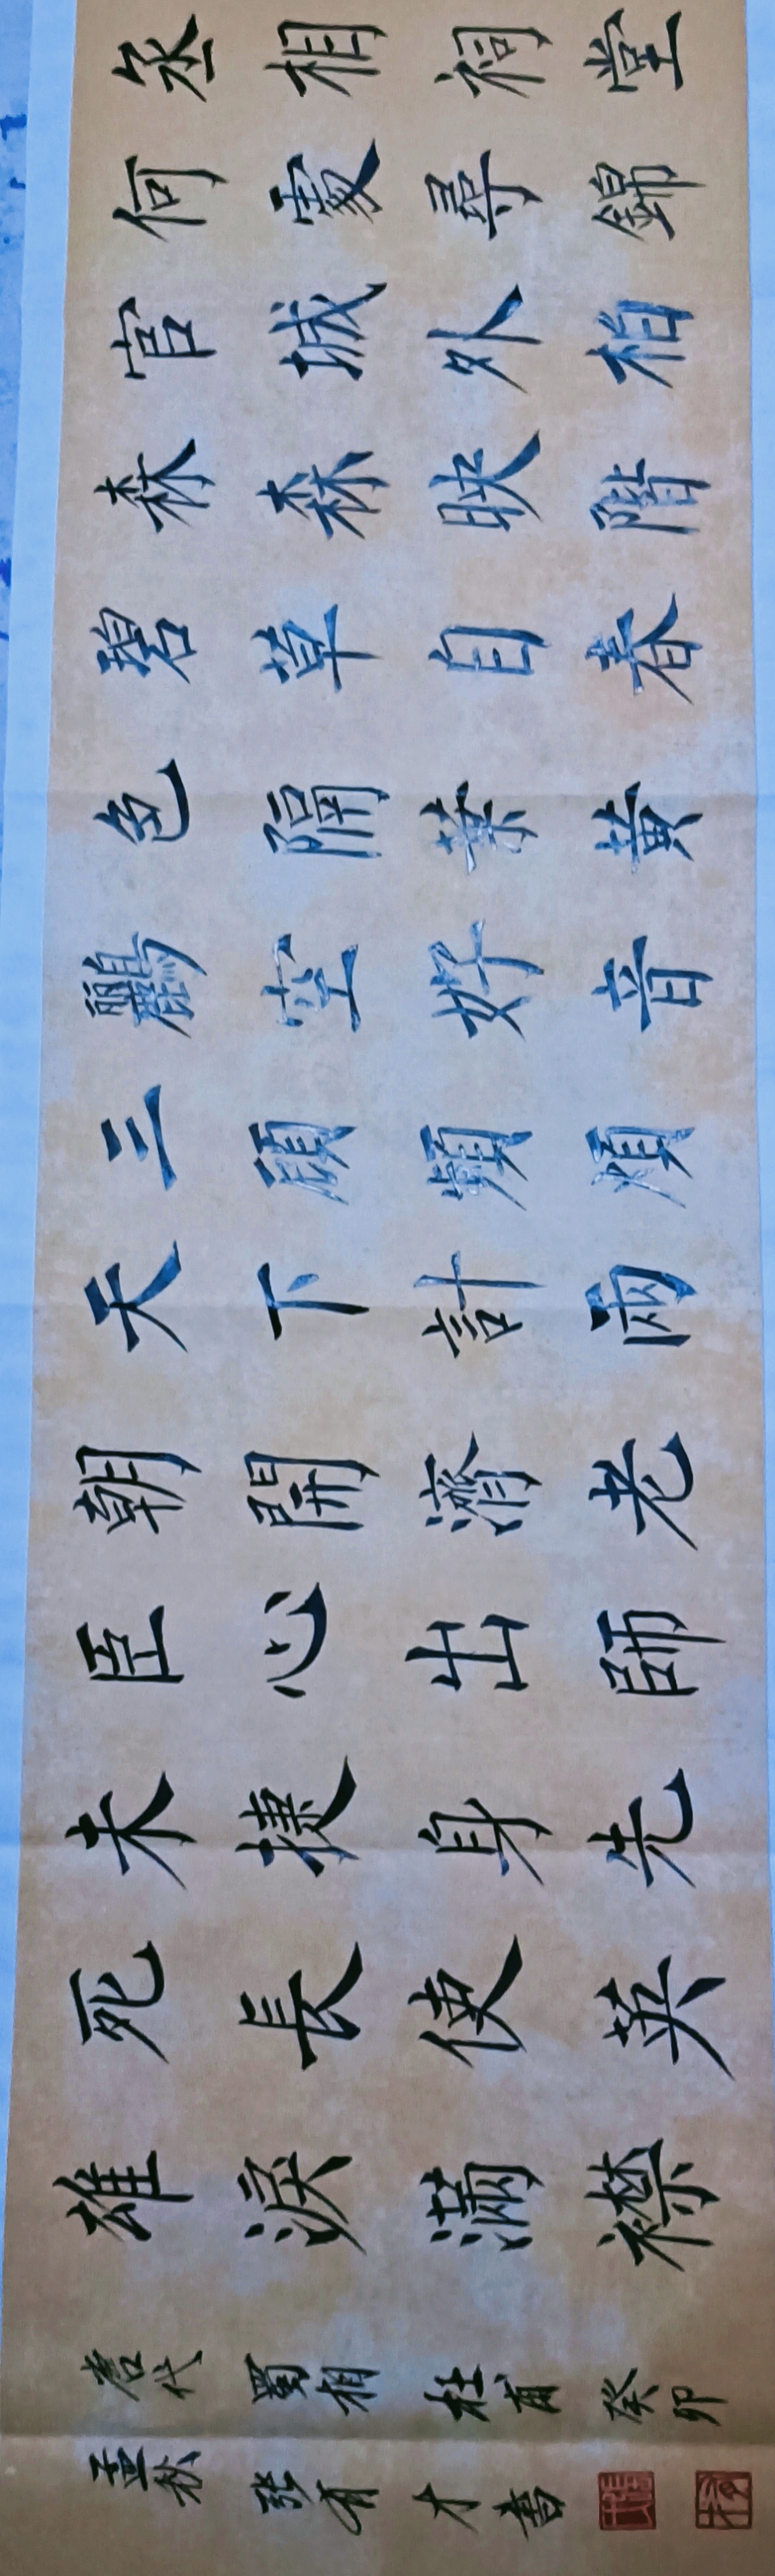 丞相祠堂
何處尋錦
官城外柏
森森映階
碧草自春
色隔葉黃
鸝空好音
三顧頻煩
天下計兩
朝開濟老
臣心出師
未捷身先
死長使英
雄淚滿襟
唐代蜀相杜甫癸卯
孟秋張有才書